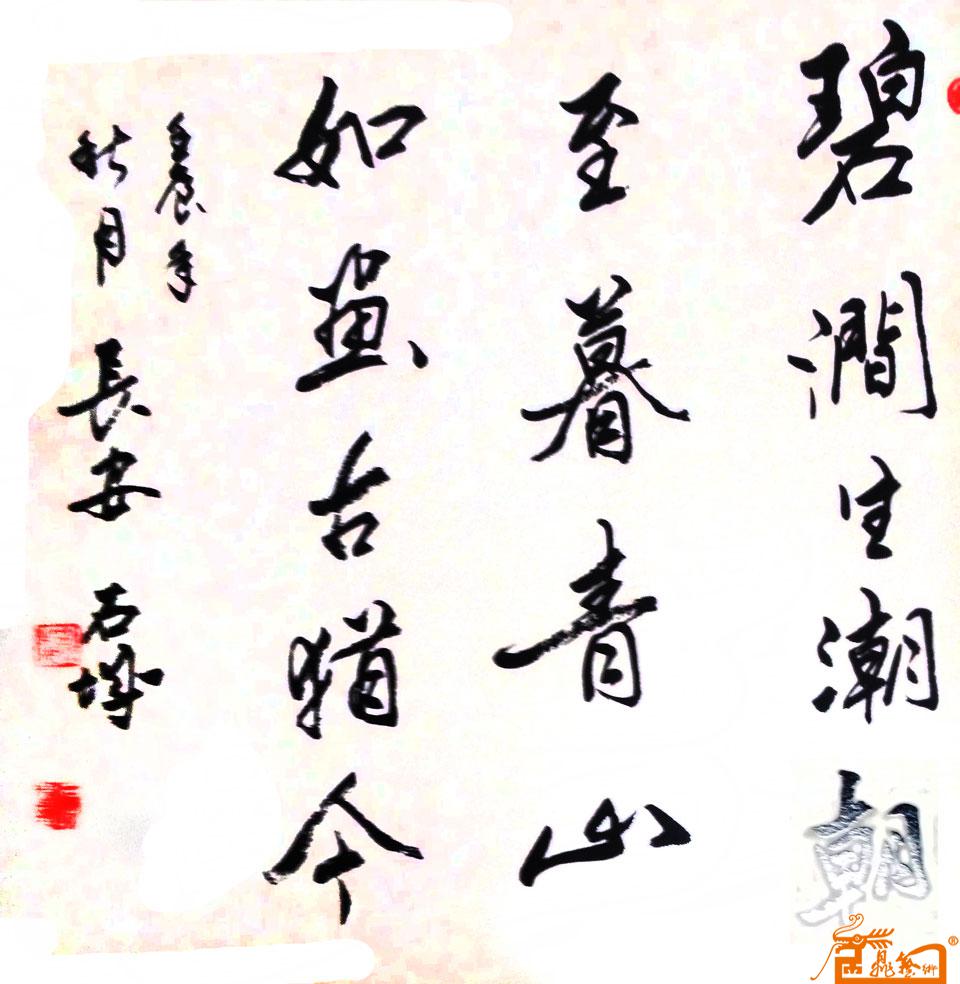 碧澗生潮朝
至暮青山
如畫古猶今
壬辰年
秋月長安石